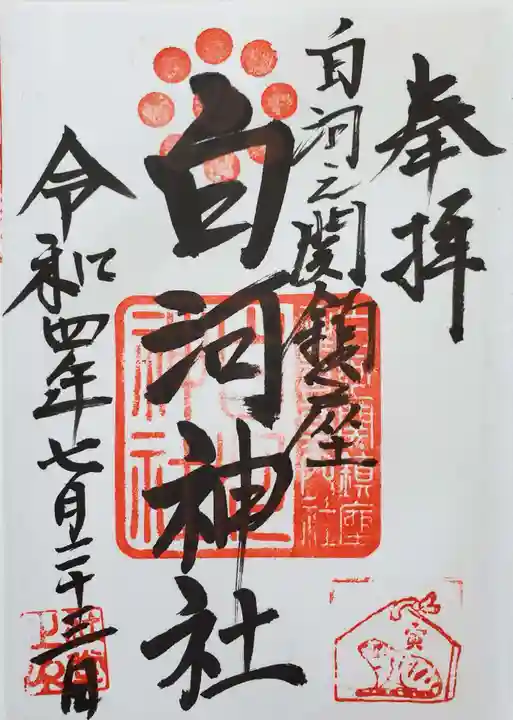 奉拝
白河之関鎮座
白河神社
令和四年七月二十三日
寅